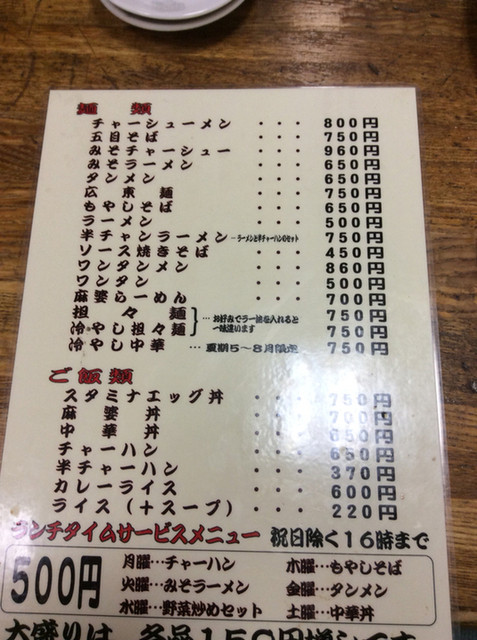 麺 類
チャーシューメン ・・・ 800円
五目そば ・・・ 750円
みそチャーシュー ・・・ 960円
みそラーメン ・・・ 650円
タンメン ・・・ 650円
広東麺 ・・・ 750円
もやしそば ・・・ 650円
ラーメン ・・・ 500円
半チャンラーメン －ラーメンと半チャーハンのセット 750円
ソース焼きそば ・・・ 450円
ワンタンメン ・・・ 860円
ワンタン ・・・ 500円
麻婆らーめん ・・・ 700円
担々麺 …お好みでラー油を入れると 750円
冷やし担々麺 一味違います 750円
冷やし中華 …夏期5～8月限定 750円
ご飯類
スタミナエッグ丼 ・・・ 750円
麻婆丼 ・・・ 700円
中華丼 ・・・ 650円
チャーハン ・・・ 650円
半チャーハン ・・・ 370円
カレーライス ・・・ 600円
ライス(＋スープ) ・・・ 220円
ランチタイムサービスメニュー 祝日除く16時まで
500円
月曜…チャーハン 木曜…もやしそば
火曜…みそラーメン 金曜…タンメン
水曜…野菜炒めセット 土曜…中華丼
大盛りは 各品150円増